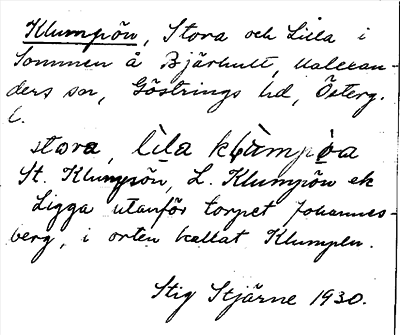 Klumpön, Stora och Lilla i
Sommen å Bjärhult, Malexan-
ders sn, Göstrings hd, Österg.
l.
stora, lìla klùmpöa
St. Klumpön, L. Klumpön ek
Ligga utanför torpet Johannes-
berg, i orten kallat Klumpen.
Stig Stjärne 1930.